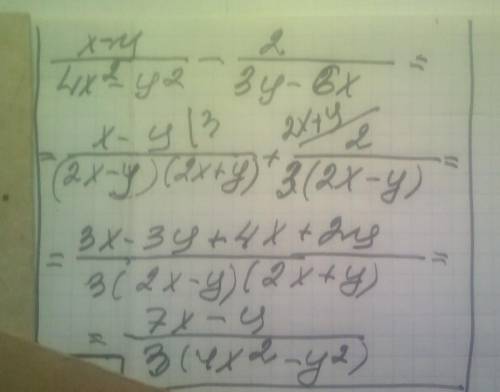 x-y/4x²-y² - 2/3y-6x =
= x-y|3/(2x-y)(2x+y) + 2x+y/2/3(2x-y) =
= 3x-3y+4x+2y/3(2x-y)(2x+y) =
= 7x-y/3(4x²-y²)